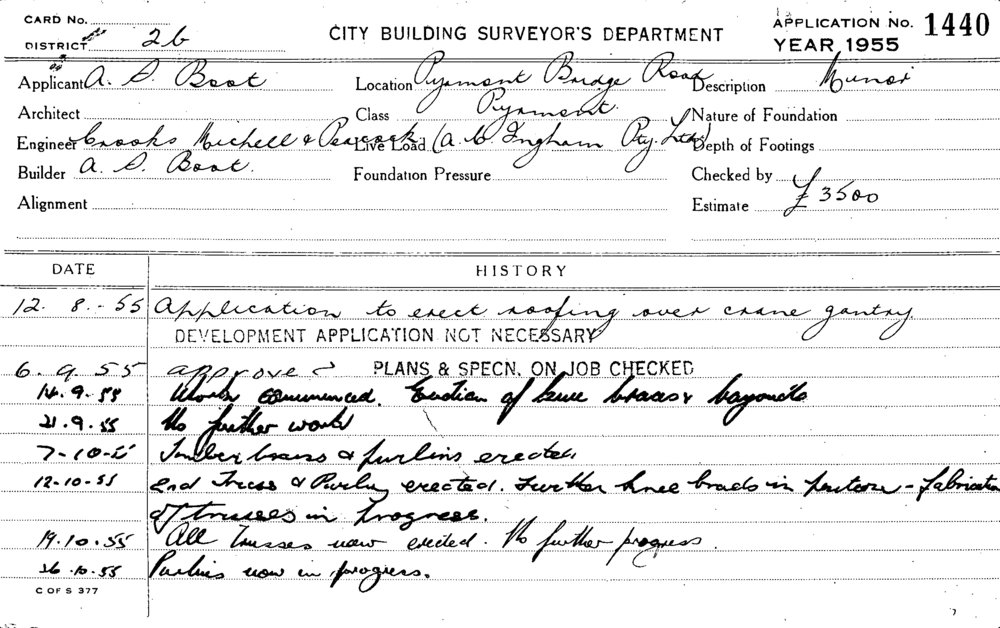 CARD No.
DISTRICT 26
CITY BUILDING SURVEYOR'S DEPARTMENT
APPLICATION No. 1440
YEAR 1955
Applicant A. S. Boot Location Pyrmont Bridge Road Description Minor
Architect Class Pyrmont. Nature of Foundation
Engineer Crooks Michell & Peacock Live Load (A. W. Ingham Pty. Ltd.) Depth of Footings
Builder A. S. Boot. Foundation Pressure Checked by
Alignment Estimate £3500
DATE HISTORY
12. 8. - 55 Application to erect roofing over crane gantry.
DEVELOPMENT APPLICATION NOT NECESSARY
6. 9. 55 approved PLANS & SPECN. ON JOB CHECKED
14.9.55 Work commenced. of knee braces &
21.9.55 No further work
7-10-55 & purlins erected
12-10-55 2nd Truss & Purlin erected. Further knee in - fabrication
of trusses in progress.
19.10.55 All trusses now erected. No further progress.
26.10.55 Purlins now in progress.
C OF S 377